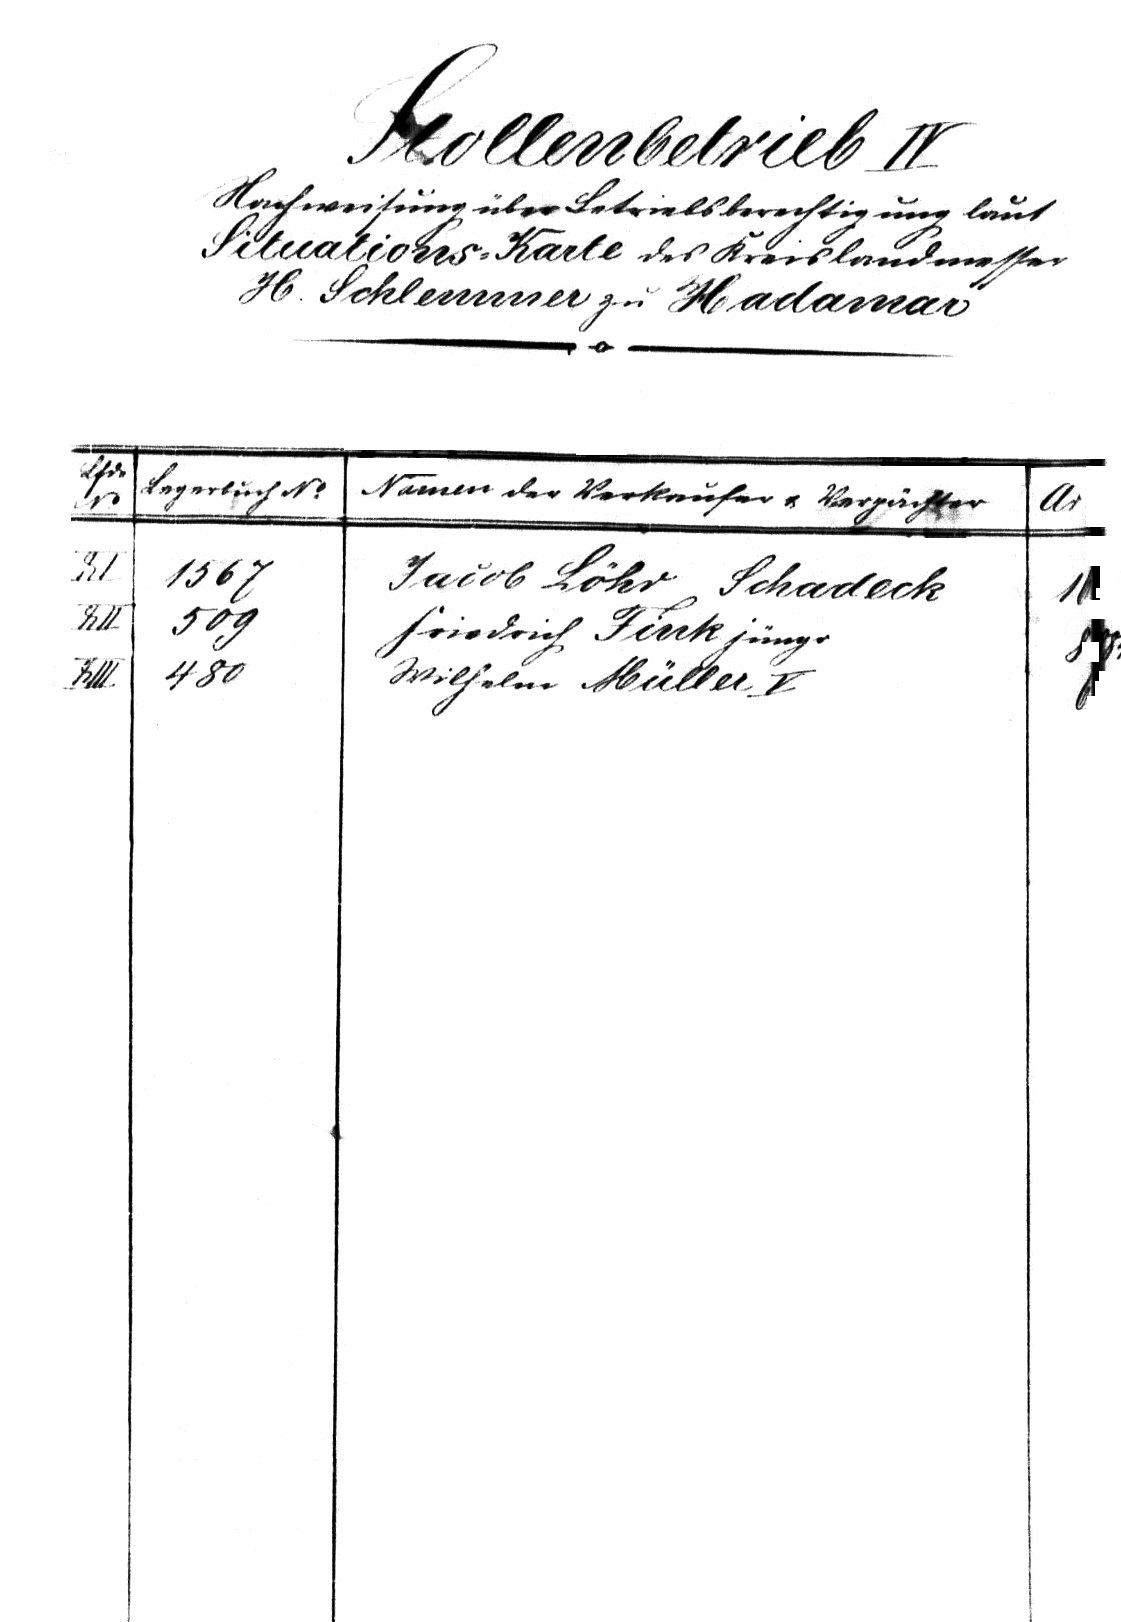 Stollenbetrieb IV
Nachweisung über Betriebsberechtigung laut
Situations-Karte des Kreislandmesser
H. Schlemmer zu Hadamar
Lfde No Lagerbuch No Namen der Verkaufer & Verpächter Ar
XI 1567 Jacob Löhr Schadeck
XII 509 Friedrich Fink jüngr
XIII 480 Wilhelm Müller V